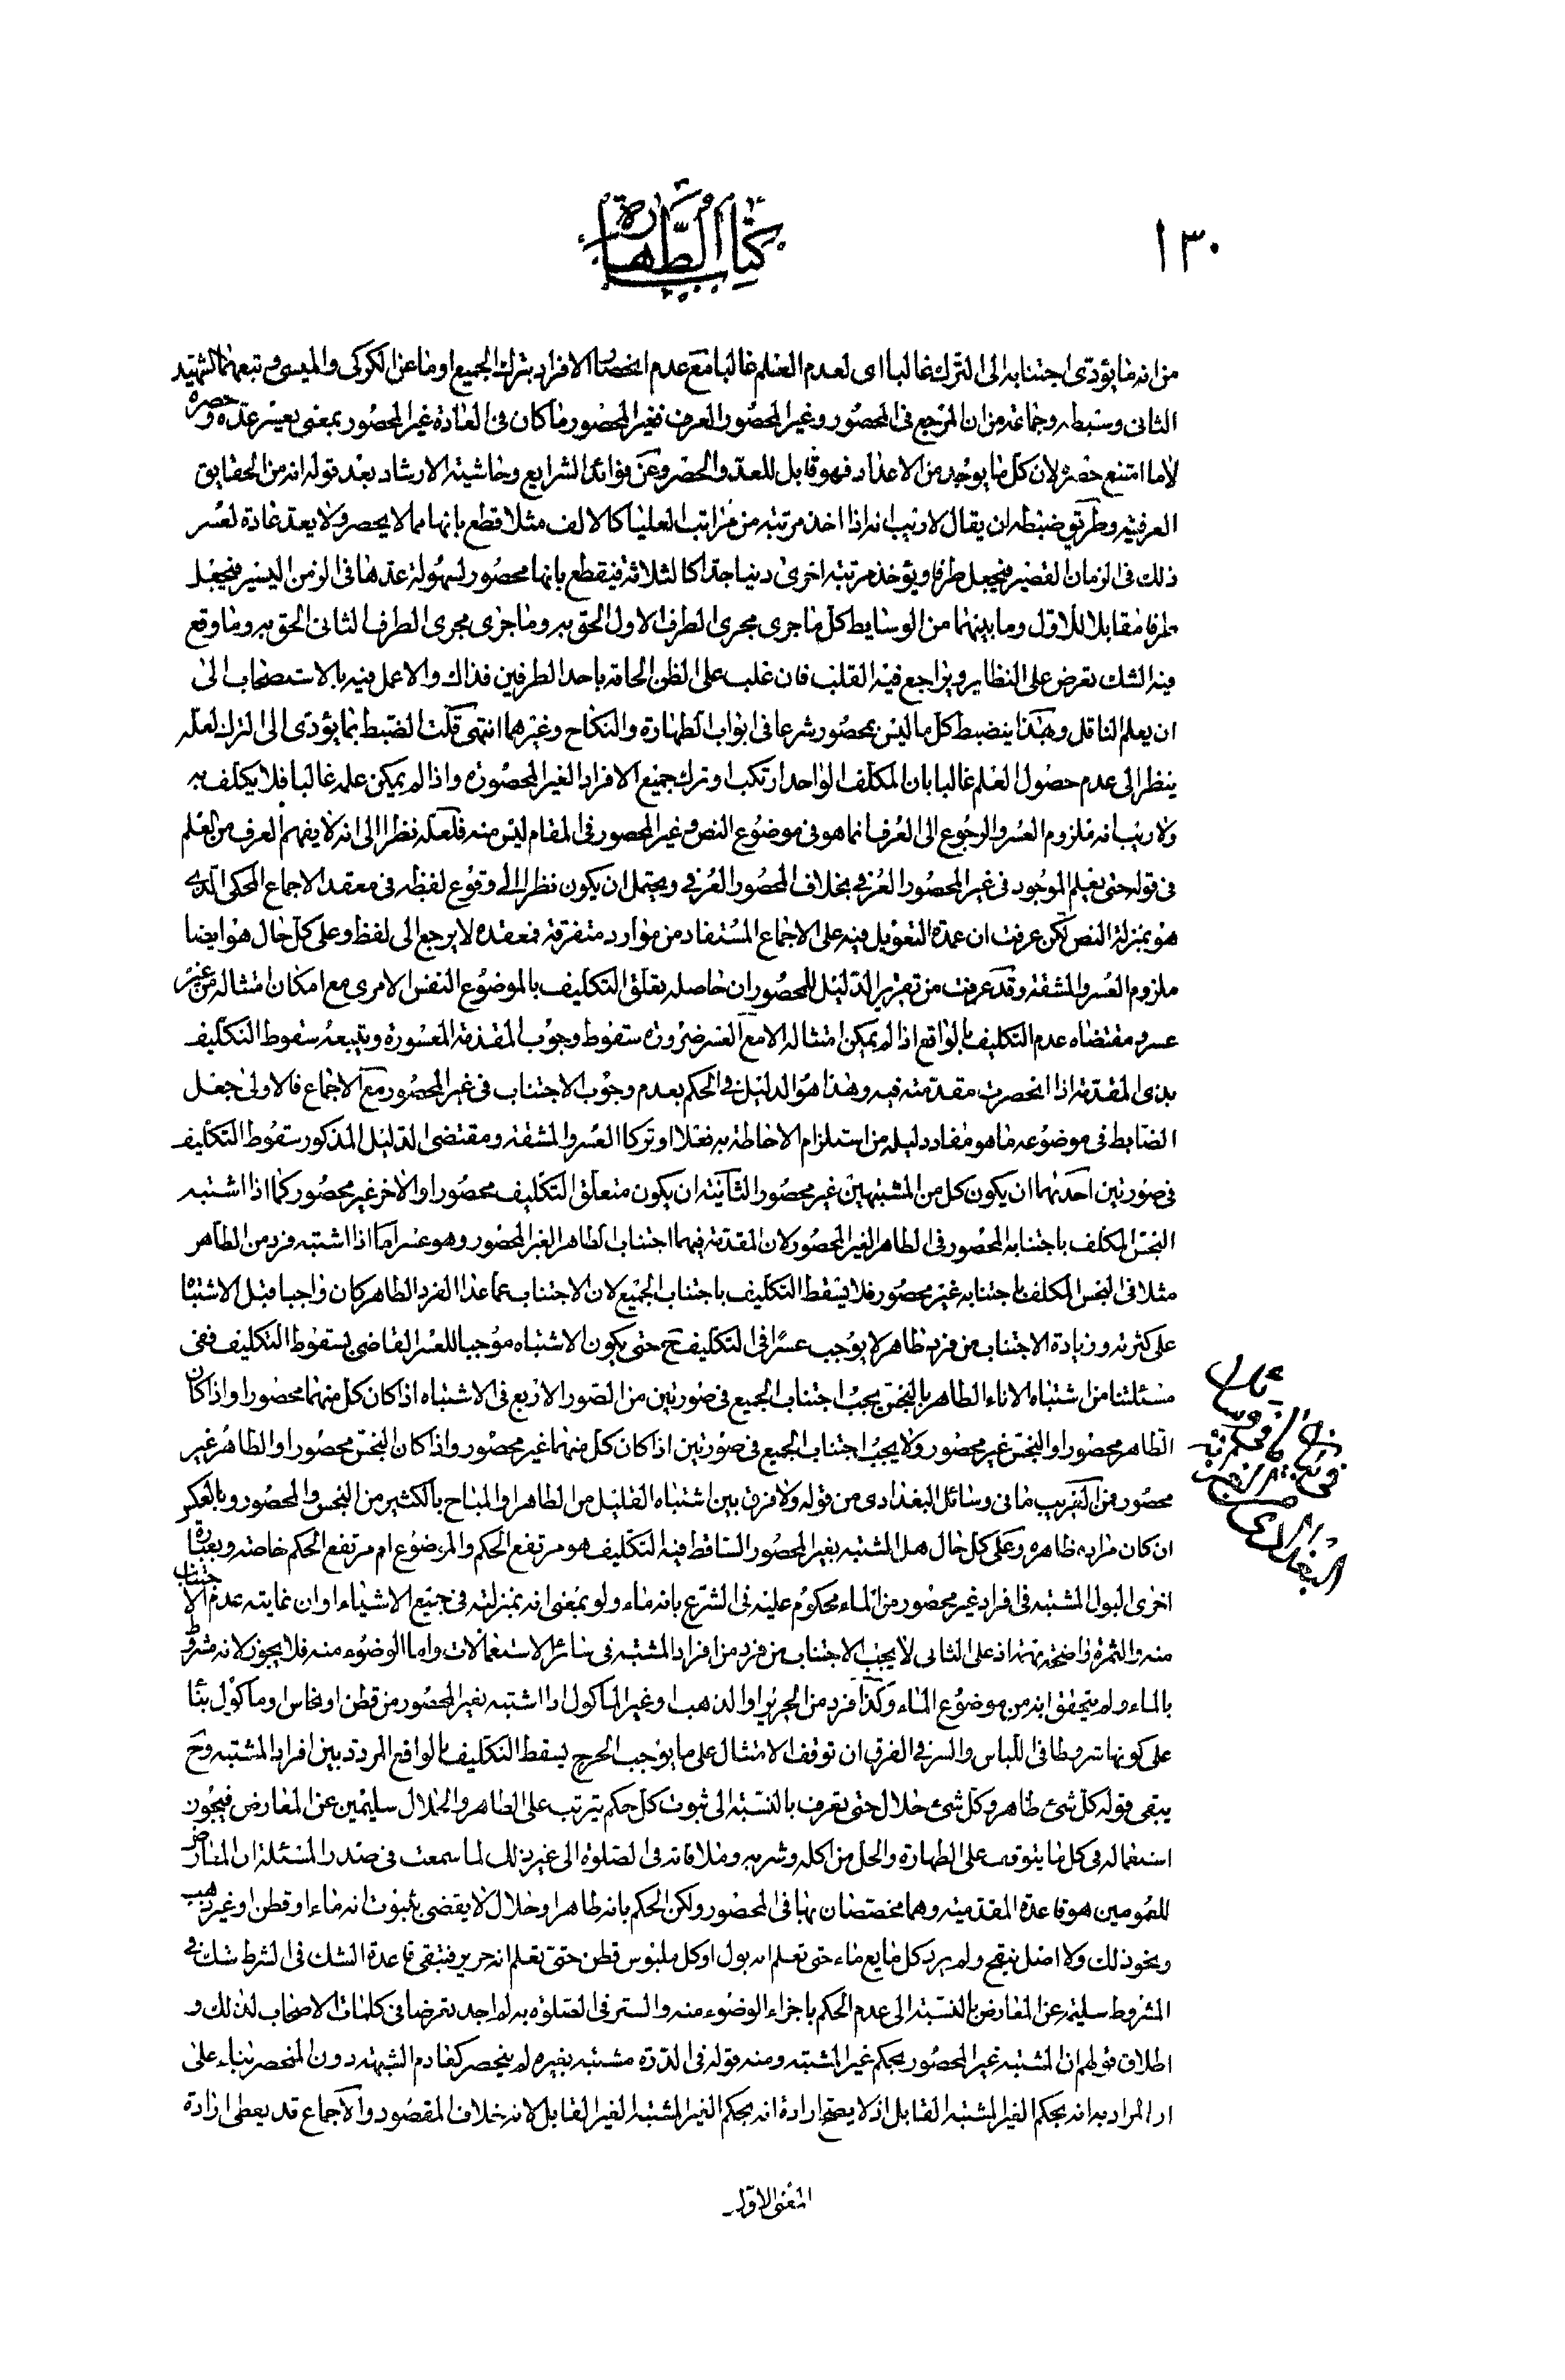 ١٣٠
كتاب الطهارة
من انه ما يؤدى اجتنابه الى الترك غالبا اى لعدم العلم غالبا مع عدم انحصار الافراد بترك الجميع اوما عن الكركى والميسى وتبعهما الشهيد
الثانى وسبطه وجماعة من ان المرجع فى المحصور وغير المحصور العرف فغير المحصور ما كان فى العادة غير المحصور بمعنى تعسر عده وحصره
لا ما امتنع حصره لان كل ما يوجد من الاعداد فهو قابل للعد والحصر وعن فوائد الشرايع وحاشية الارشاد بعد قوله انه من الحقايق
العرفية وطريق ضبطه ان يقال لا ريب انه اذا اخذ مرتبة من مراتب العليا كالالف مثلا قطع بانها مما لا يحصر ولا يعد عادة لعسر
ذلك فى الزمان القصير فيجعل طرفا ويؤخذ مرتبة اخرى دنيا جدا كالثلاثة فيقطع بانها محصور لسهولة عدها فى الزمن اليسير فيجعل
طرفا مقابلا للاول وما بينهما من الوسايط كل ما جرى مجرى الطرف الاول الحق به وما جرى مجرى الطرف الثانى الحق به وما وقع
فيه الشك تعرض على النظاير ويراجع فيه القلب فان غلب على الظن الحاقه باحد الطرفين فذاك والا عمل فيه بالاستصحاب الى
ان يعلم الناقل وبهذا ينضبط كل ما ليس بمحصور شرعا فى ابواب الطهارة والنكاح وغيرهما انتهى قلت الضبط بما يؤدى الى الترك لعله
ينظر الى عدم حصول العلم غالبا بان المكلف الواحد ارتكب او ترك جميع الافراد الغير المحصورة واذا لم يمكن علمه غالبا فلا يكلف به
ولا ريب انه ملزوم العسر والرجوع الى العرف انما هو فى موضوع النص وغير المحصور فى المقام ليس منه فلعله نظر الى انه لا يفهم العرف من العلم
فى قوله حتى تعلم الموجود فى غير المحصور العرفى بخلاف المحصور العرفى ويحتمل ان يكون نظر الى وقوع لفظه فى معقد الاجماع المحكى الذى
هو بمنزلة النص لكن عرفت ان عمدة التعويل فيه على الاجماع المستفاد من موارد متفرقة فمعقده لا يرجع الى لفظ وعلى كل حال هو ايضا
ملزوم العسر والمشقة وقد عرفت من تقرير الدليل للمحصور ان حاصله تعلق التكليف بالموضوع النفس الامرى مع امكان امتثاله من غير
عسر ومقتضاه عدم التكليف بالواقع اذا لم يمكن امتثاله الا مع العسر ضرورة سقوط وجوب المقدمة المعسورة ويتبعه سقوط التكليف
بذى المقدمة اذا انحصرت مقدمته فيه وهذا هو الدليل فى الحكم بعدم وجوب الاجتناب فى غير المحصور مع الاجماع فالاولى جعل
الضابط فى موضوعه ما هو مفاد دليله من استلزام الاحاطة به فعلا او تركا العسر والمشقة ومقتضى الدليل المذكور سقوط التكليف
فى صورتين احدهما ان يكون كل من المشتبهين غير محصور الثانية ان يكون متعلق التكليف محصورا والاخر غير محصور كما اذا اشتبه
النجس المكلف باجتنابه المحصور فى الطاهر الغير المحصور لان المقدمة فيهما اجتناب الطاهر الغير المحصور وهو عسر اما اذا اشتبه فرد من الطاهر
مثلا فى النجس المكلف باجتنابه غير محصور فلا يسقط التكليف باجتناب الجميع لان الاجتناب عما عدا الفرد الطاهر كان واجبا قبل الاشتباه
على كثرته وزيادة الاجتناب من فرد طاهر لا يوجب عسرا فى التكليف ح حتى يكون الاشتباه موجبا للعسر القاضى بسقوط التكليف ففى
مسئلتنا من اشتباه الاناء الطاهر بالنجس يجب اجتناب الجميع فى صورتين من الصور الاربع فى الاشتباه اذا كان كل منهما محصورا واذا كان
الطاهر محصورا والنجس غير محصور ولا يجب اجتناب الجميع فى صورتين اذا كان كل منهما غير محصور واذا كان النجس محصورا والطاهر غير
محصور فمن الغريب ما فى وسائل البغدادى من قوله ولا فرق بين اشتباه القليل من الطاهر او المباح بالكثير من النجس والمحصور وبالعكس
ان كان مراده ظاهره وعلى كل حال هل المشتبه بغير المحصور الساقط فيه التكليف هو مرتفع الحكم والموضوع ام مرتفع الحكم خاصة وبعبارة
اخرى البول المشتبه فى افراد غير محصور من الماء محكوم عليه فى الشرع بانه ماء ولو بمعنى انه بمنزلته فى جميع الاشياء او ان غايته عدم الاجتناب
منه والثمرة واضحة بينهما اذ على الثانى لا يجب الاجتناب من فرد من افراد المشتبه فى سائر الاستعمالات واما الوضوء منه فلا يجوز لانه مشروط
بالماء ولم يتحقق انه من موضوع الماء وكذا فرد من الحرير او الذهب او غير الماكول اذا اشتبه بغير المحصور من قطن او نحاس او ماكول بناء
على كونها شروطا فى اللباس والسر فى الفرق ان توقف الامتثال على ما يوجب الحرج يسقط التكليف بالواقع المردد بين افراد المشتبه وح
يبقى قوله كل شئ طاهر وكل شئ حلال حتى تعرف بالنسبة الى ثبوت كل حكم يترتب على الطاهر والحلال سليمين عن المعارض فيجوز
استعماله فى كل ما يتوقف على الطهارة والحل من اكله وشربه وملاقاته فى الصلوة الى غير ذلك لما سمعت فى صدر المسئلة ان المعارض
للعمومين هو قاعدة المقدمية وهما مختصان بها فى المحصور ولكن الحكم بانه طاهر او حلال لا يقضى بثبوت انه ماء او قطن او غير ذهب
ونحو ذلك ولا اصل ينقح ولم يرد كل مايع ماء حتى تعلم انه بول او كل ملبوس قطن حتى تعلم انه حرير فتبقى قاعدة الشك فى الشرط شك فى
المشروط سليمة عن المعارض بالنسبة الى عدم الحكم باجزاء الوضوء منه والستر فى الصلوة به لم اجد تعرضا فى كلمات الاصحاب لذلك و
اطلاق قولهم ان المشتبه غير المحصور بحكم غير المشتبه ومنه قوله فى الدرة مشتبه بغيره لم ينحصر كفادم الشبهة دون المنحصر بناء على
ان المراد به انه بحكم الغير المشتبه القابل اذ لا يصح ارادة انه بحكم الغير المشتبه الغير القابل لانه خلاف المقصود والاجماع قد يعطى ارادة
المعنى الاول